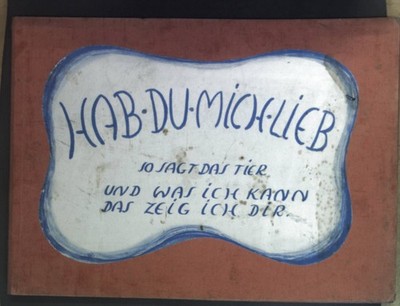 HAB·DU·MICH·LIEB
SO SAGT DAS TIER
UND WAS ICH KANN
DAS ZEIG ICH DIR.